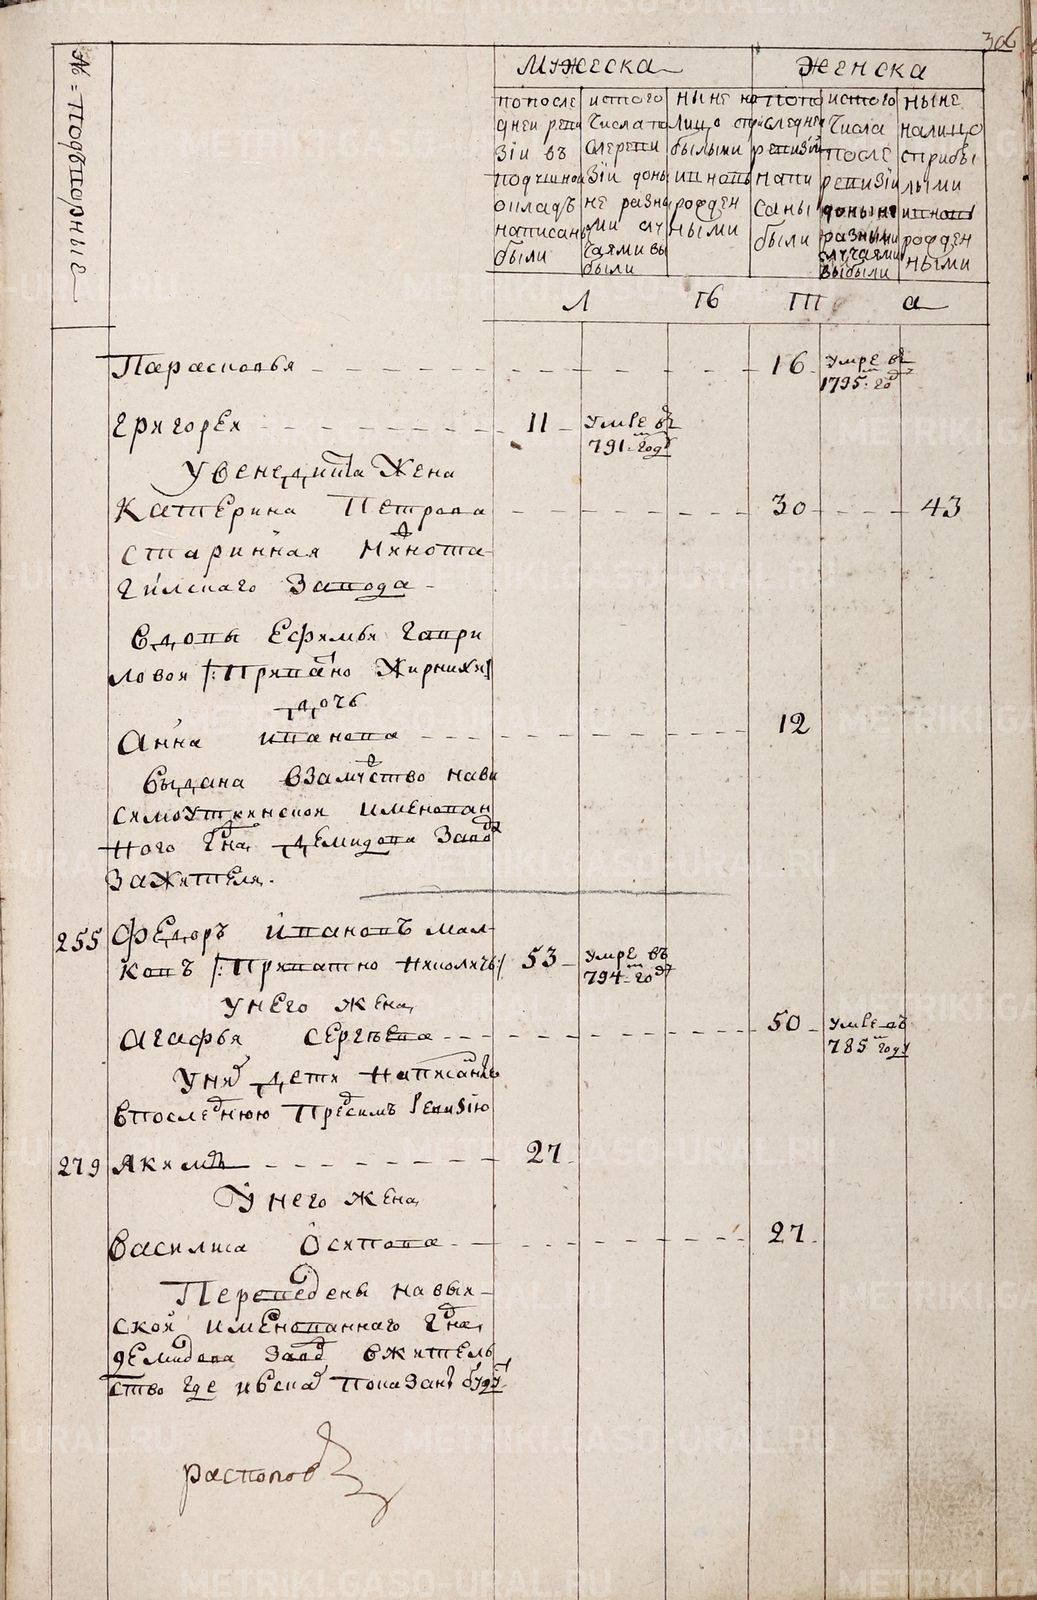 306
№ = Подвторные
Мужеска
Женска
попосле
дней реви
зіи въ
подушной
окладъ
написаны
были
истого
Числа по
слереви
зіи доны
не разны
ми слу
чаями вы
были
ныне на
Лицо спри
былыми
ивновь
рожден
ными
попо
следней
ревизіи
напи
саны
были
истого
Числа
после
ревизіи
доныне
разными
случаями
выбыли
ныне
налицо
сприбы
лыми
ивновь
рожден
ными
Л Ѣ т а
Парасковья 16 Умре въ
1795: годъ
Григорей 11 Умре въ
791. году
Увенедикта Жена
Катерина Петрова 30 43
старинная Нижнота
гилскаго Завода
Вдовы Ефимьи Гаври
ловой /: Приватно Жирнихи :/
дочь
Анна иванова 12
Выдана взамуство нави
симоуткинской именован
ного Гдна демидова Завод
Зажителя.
255 Федоръ ивановъ мал-
ковъ /: Приватно Николичь :/ 53 Умре въ
794 году
У него жена
Агафья Сергѣева 50 Умре въ
785 году
У них дети Написанные
впоследнюю пред симъ Ревизію
279 Якимъ 27
У него жена
Василиса Осипова 27
Переведены навыи-
ской именованнаго Гдна
демидова Завод вжитель
ство где ивсказ показаны будут
распопов